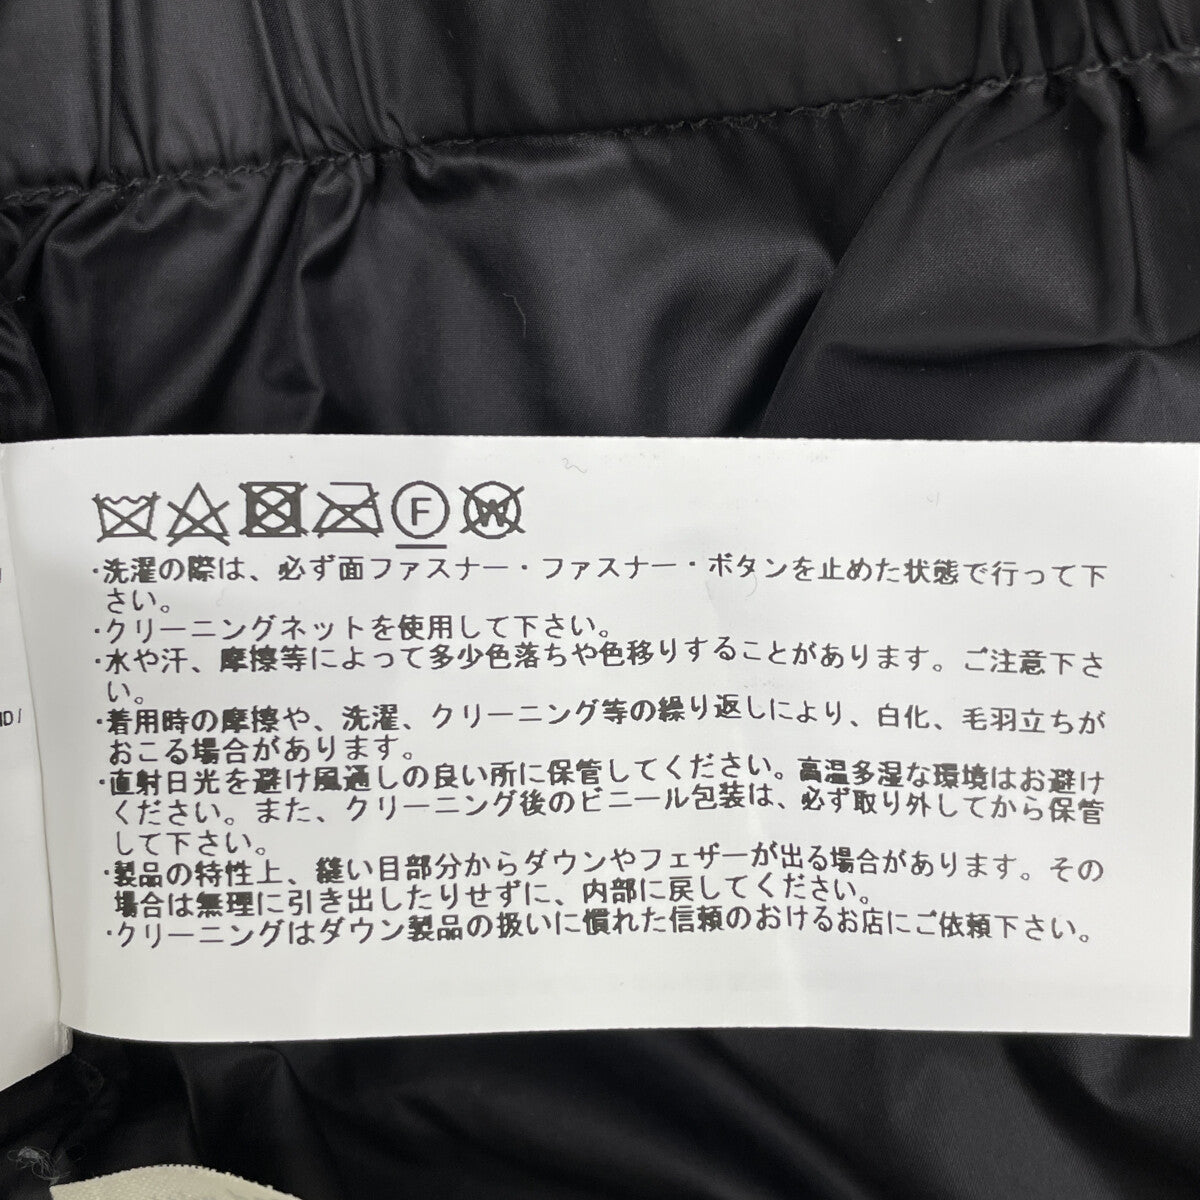 F W
・洗濯の際は、必ず面ファスナー・ファスナー・ボタンを止めた状態で行って下
さい。
・クリーニングネットを使用して下さい。
・水や汗、摩擦等によって多少色落ちや色移りすることがあります。ご注意下さ
い。
・着用時の摩擦や、洗濯、クリーニング等の繰り返しにより、白化、毛羽立ちが
おこる場合があります。
・直射日光を避け風通しの良い所に保管してください。高温多湿な環境はお避け
ください。また、クリーニング後のビニール包装は、必ず取り外してから保管
して下さい。
・製品の特性上、縫い目部分からダウンやフェザーが出る場合があります。その
場合は無理に引き出したりせずに、内部に戻してください。
・クリーニングはダウン製品の扱いに慣れた信頼のおけるお店にご依頼下さい。